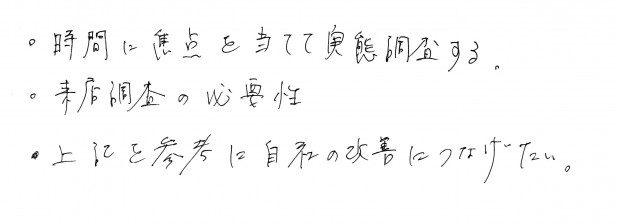 ・時間に焦点を当てて実態調査する。
・来店調査の必要性
・上記を参考に自社の改善につなげたい。